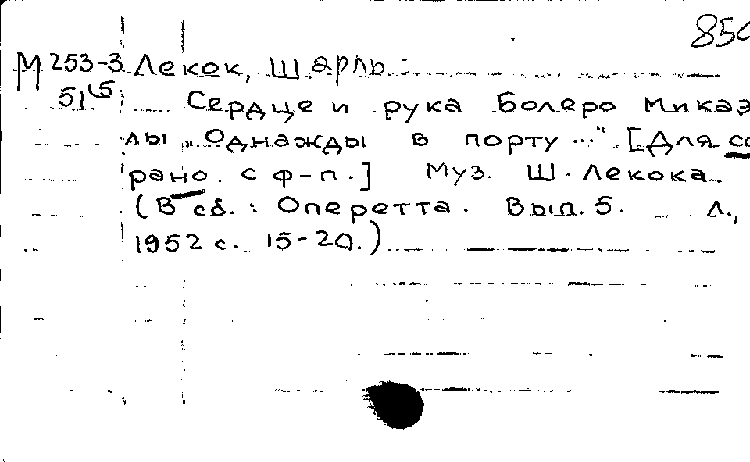 850
М 253-3 Лекок, Шарль.
51 Сердце и рука Болеро Микаэ
лы „Однажды в порту..." [Для со
рано. с ф-п.] Муз. Ш. Лекока.
(В сб.: Оперетта. Вып. 5. Л.,
1952 с. 15-20.)